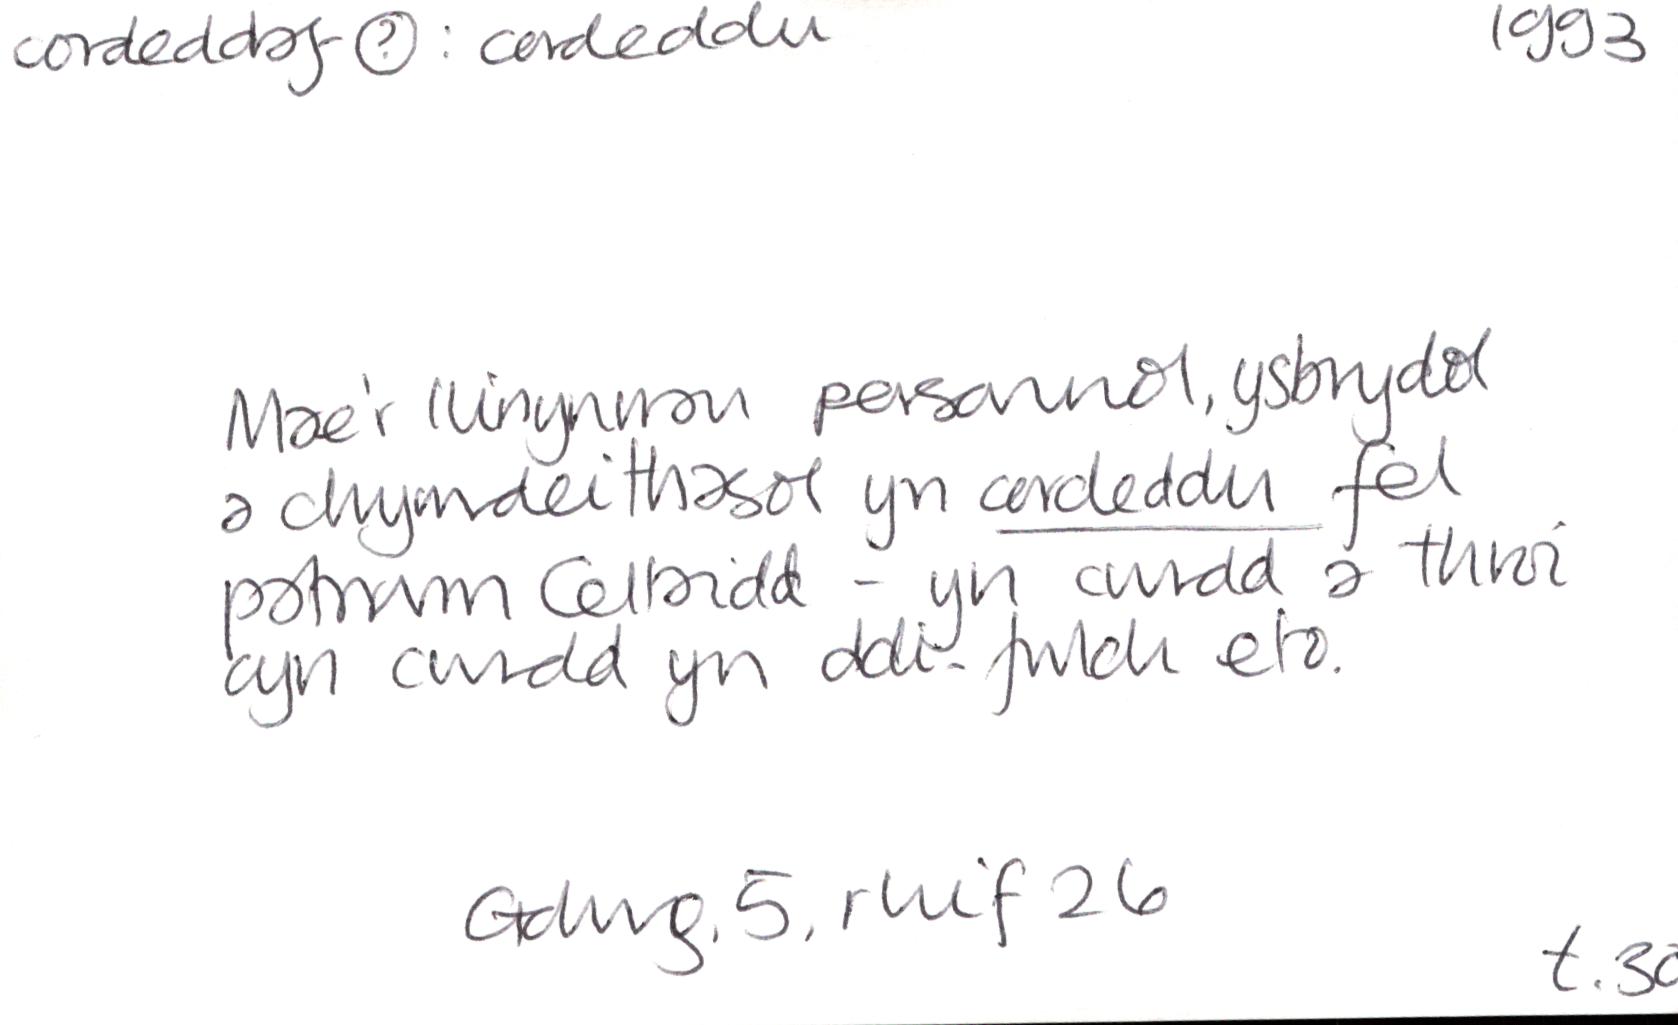 cordeddaf ?: cordeddu 1993
Mae'r llinynnau personnol, ysbrydol
a chymdeithasol yn cordeddu fel
patrwm Celtaidd - yn cwrdd a throi
cyn cwrdd yn ddi-fwlch eto.
Golwg, 5, rhif 26
t.30